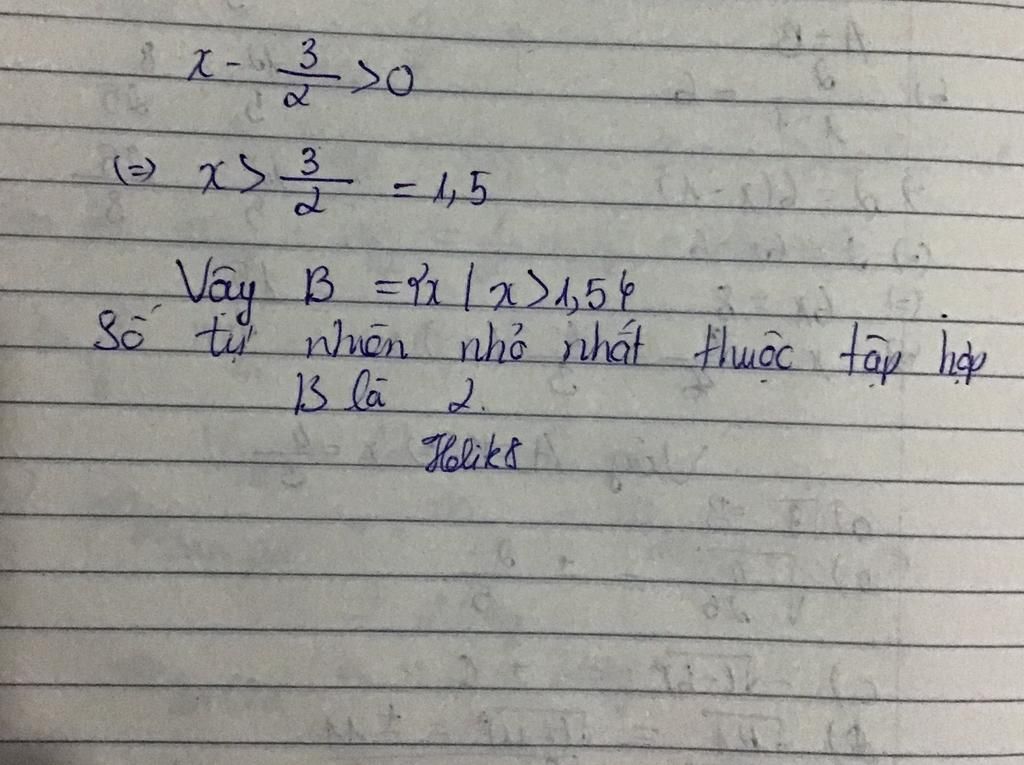 x - 3/2 > 0
(=) x > 3/2 = 1,5
Vậy B = {x | x > 1,5}
Số tự nhiên nhỏ nhất thuộc tập hợp
B là 2.